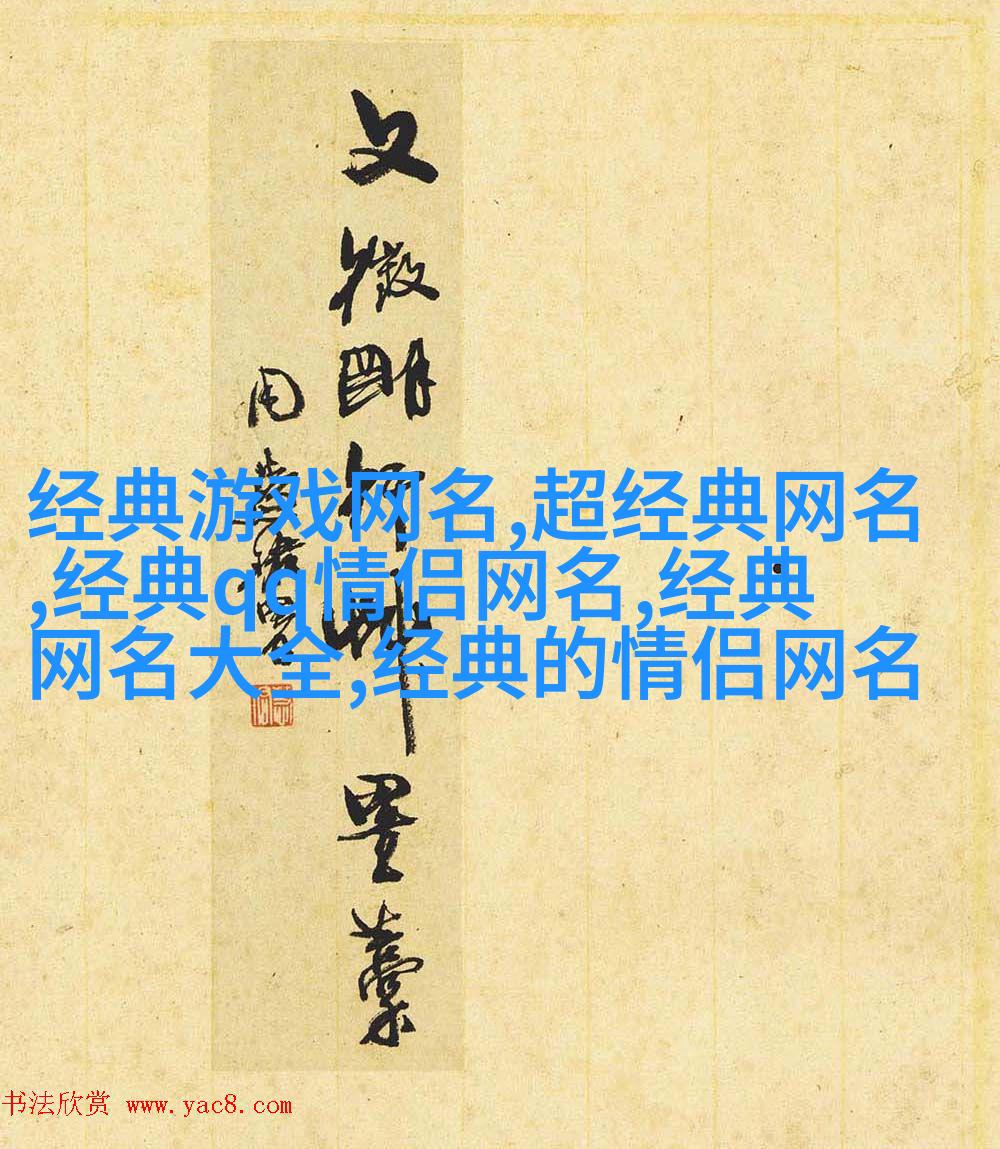 文徵明行草墨藁
经典游戏网名,超经典网名
,经典qq情侣网名,经典
网名大全,经典的情侣网名
书法欣赏 www.yac8.com